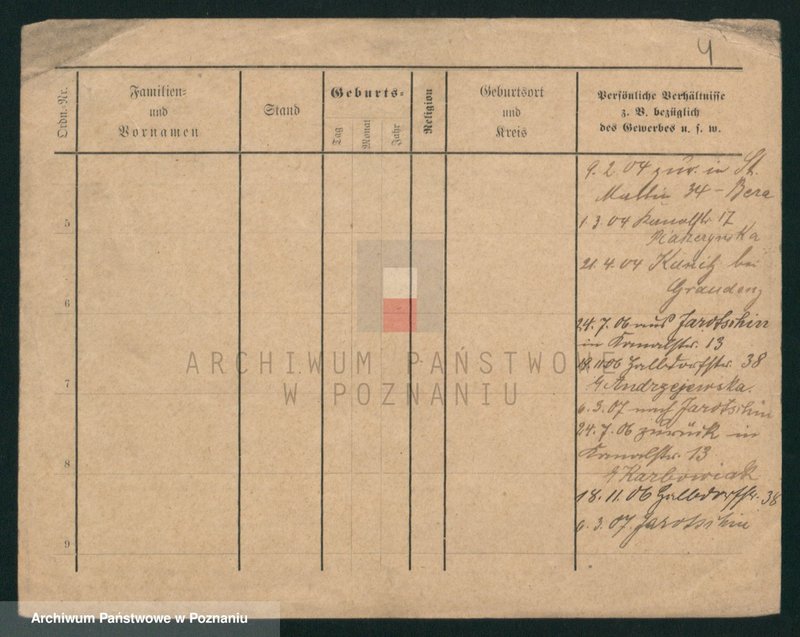 4
Ordn.-Nr.
Familien-
und
Vornamen
Stand
Geburts-
Tag
Monat
Jahr
Religion
Geburtsort
und
Kreis
Persönliche Verhältnisse
z. B. bezüglich
des Gewerbes u. s. w.
9. 2. 04 zur. in St.
Martin 34 –
1. 3. 04 Kanalstr. 17
21. 4. 04 bei
Graudenz
24. 7. 06 aus Jarotschin
in Kanalstr. 13
18. 11 06 Halbdorfstr. 38
Andrzejewska.
6. 3. 07 nach Jarotschin
24. 7. 06 zurück in
Kanalstr. 13
Karbowiak
18. 11. 06 Halbdorfstr. 38
6. 3. 07. Jarotschin
5
6
7
8
9
ARCHIWUM PAŃSTWOWE
W POZNANIU
Archiwum Państwowe w Poznaniu